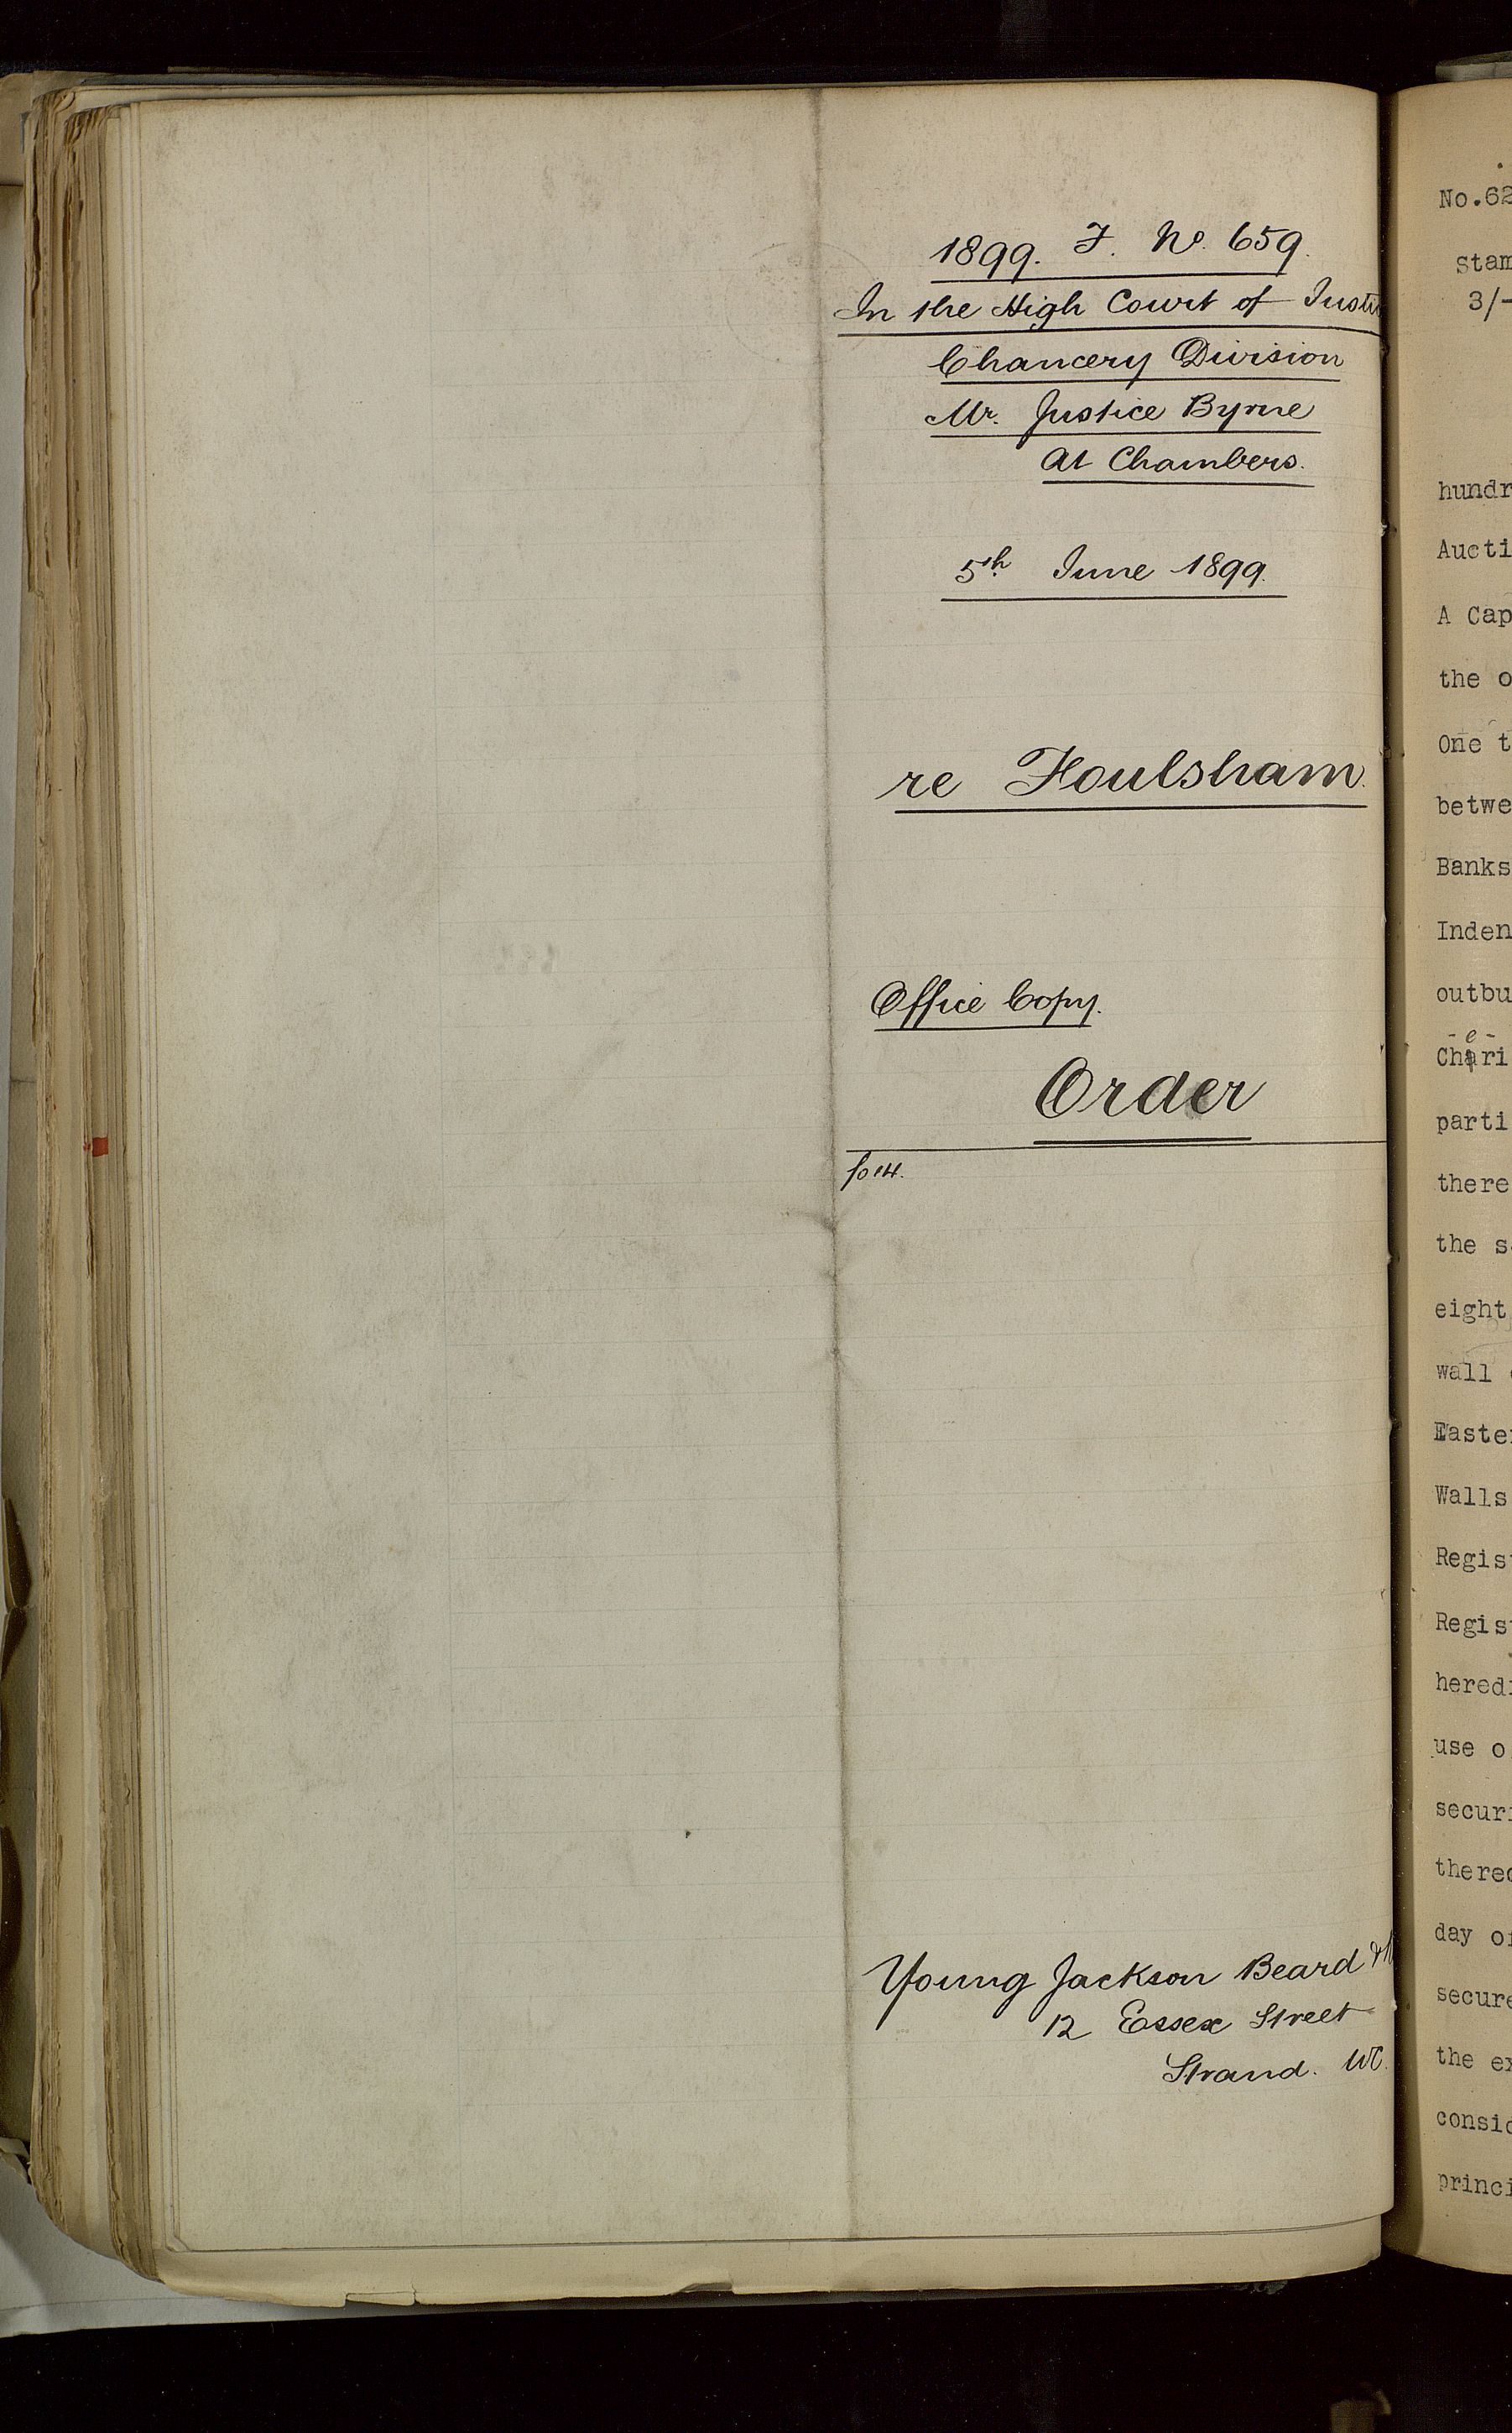 1899. F. No. 659.
In the High Court of Justi
Chancery Division
Mr. Justice Byrne
At Chambers.
5th June 1899.
re Foulsham.
Office Copy.
Order
fo 14.
Young Jackson Beard &
12 Essex Street
Strand. WC.
No.62
Stam
3/-
hundr
Aucti
A Cap
the o
One t
betwe
Banks
Inden
outbu
-e-
Chari
parti
there
the s
eight
wall
Easte
Walls
Regis
Regis
heredi
use o
securi
thereo
day of
secure
the ex
consid
princi